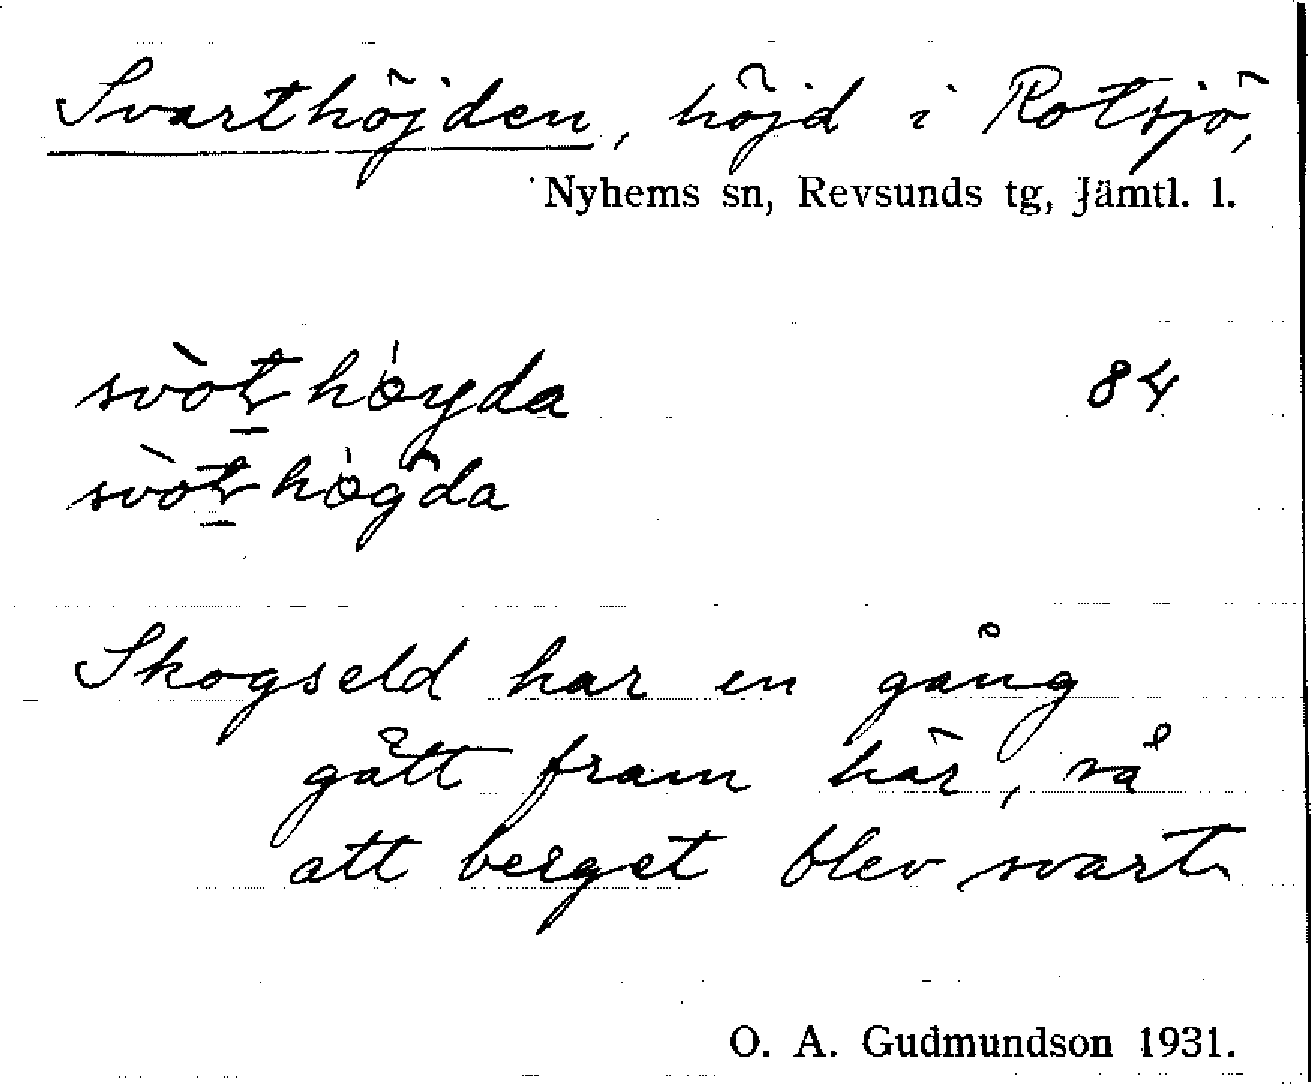 Svarthöjden, höjd i Rotsjö,
Nyhems sn, Revsunds tg, Jämtl. l.
svòt høyda 84
svòt høgda
Skogseld har en gång
gått fram här, så
att berget blev svart
O. A. Gudmundson 1931.